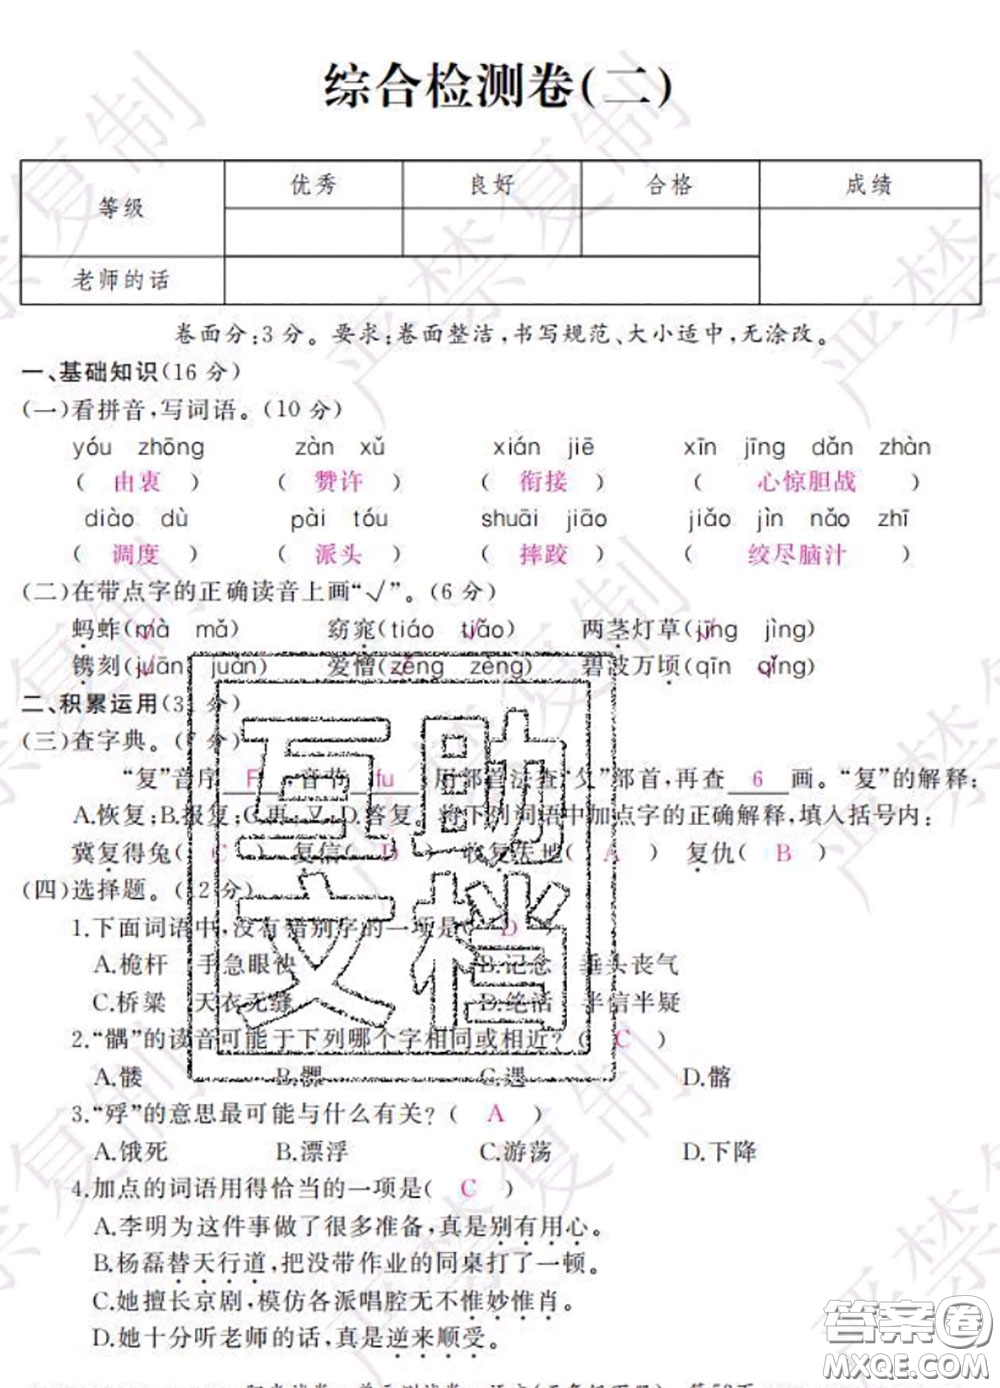 综合检测卷(二)
等级 优秀 良好 合格 成绩
老师的话
卷面分:3分。要求:卷面整洁,书写规范、大小适中,无涂改。
一、基础知识(16分)
(一)看拼音,写词语。(10分)
yóu zhōng zàn xǔ xián jiē xīn jīng dǎn zhàn
( 由衷 ) ( 赞许 ) ( 衔接 ) ( 心惊胆战 )
diào dù pài tóu shuāi jiāo jiǎo jìn nǎo zhī
( 调度 ) ( 派头 ) ( 摔跤 ) ( 绞尽脑汁 )
(二)在带点字的正确读音上画“√”。(6分)
蚂蚱(mà mǎ) 窈窕(tiáo tiǎo) 两茎灯草(jīng jìng)
镌刻(juān juàn) 爱憎(zēng zèng) 碧波万顷(qīn qǐng)
二、积累运用(3 分)
(三)查字典。( 分)
“复”音序 F ,音节 fu ,用部首法查“夂”部首,再查 6 画。“复”的解释:
A.恢复;B.报复;C.再,又;D.答复。将下列词语中加点字的正确解释,填入括号内:
冀复得兔( C ) 复信( D ) 收复失地( A ) 复仇( B )
(四)选择题。(12分)
1.下面词语中,没有错别字的一项是( D )
A.桅杆 手急眼快 B.记念 垂头丧气
C.桥梁 天衣无缝 D.绝活 半信半疑
2.“髃”的读音可能于下列哪个字相同或相近?( C )
A.髅 B.髁 C.遇 D.髂
3.“殍”的意思最可能与什么有关?( A )
A.饿死 B.漂浮 C.游荡 D.下降
4.加点的词语用得恰当的一项是( C )
A.李明为这件事做了很多准备,真是别有用心。
B.杨磊替天行道,把没带作业的同桌打了一顿。
C.她擅长京剧,模仿各派唱腔无不惟妙惟肖。
D.她十分听老师的话,真是逆来顺受。
互助
文档
严禁复制
严禁复制
严禁复制
严禁复制
答案圈
MXQE.COM